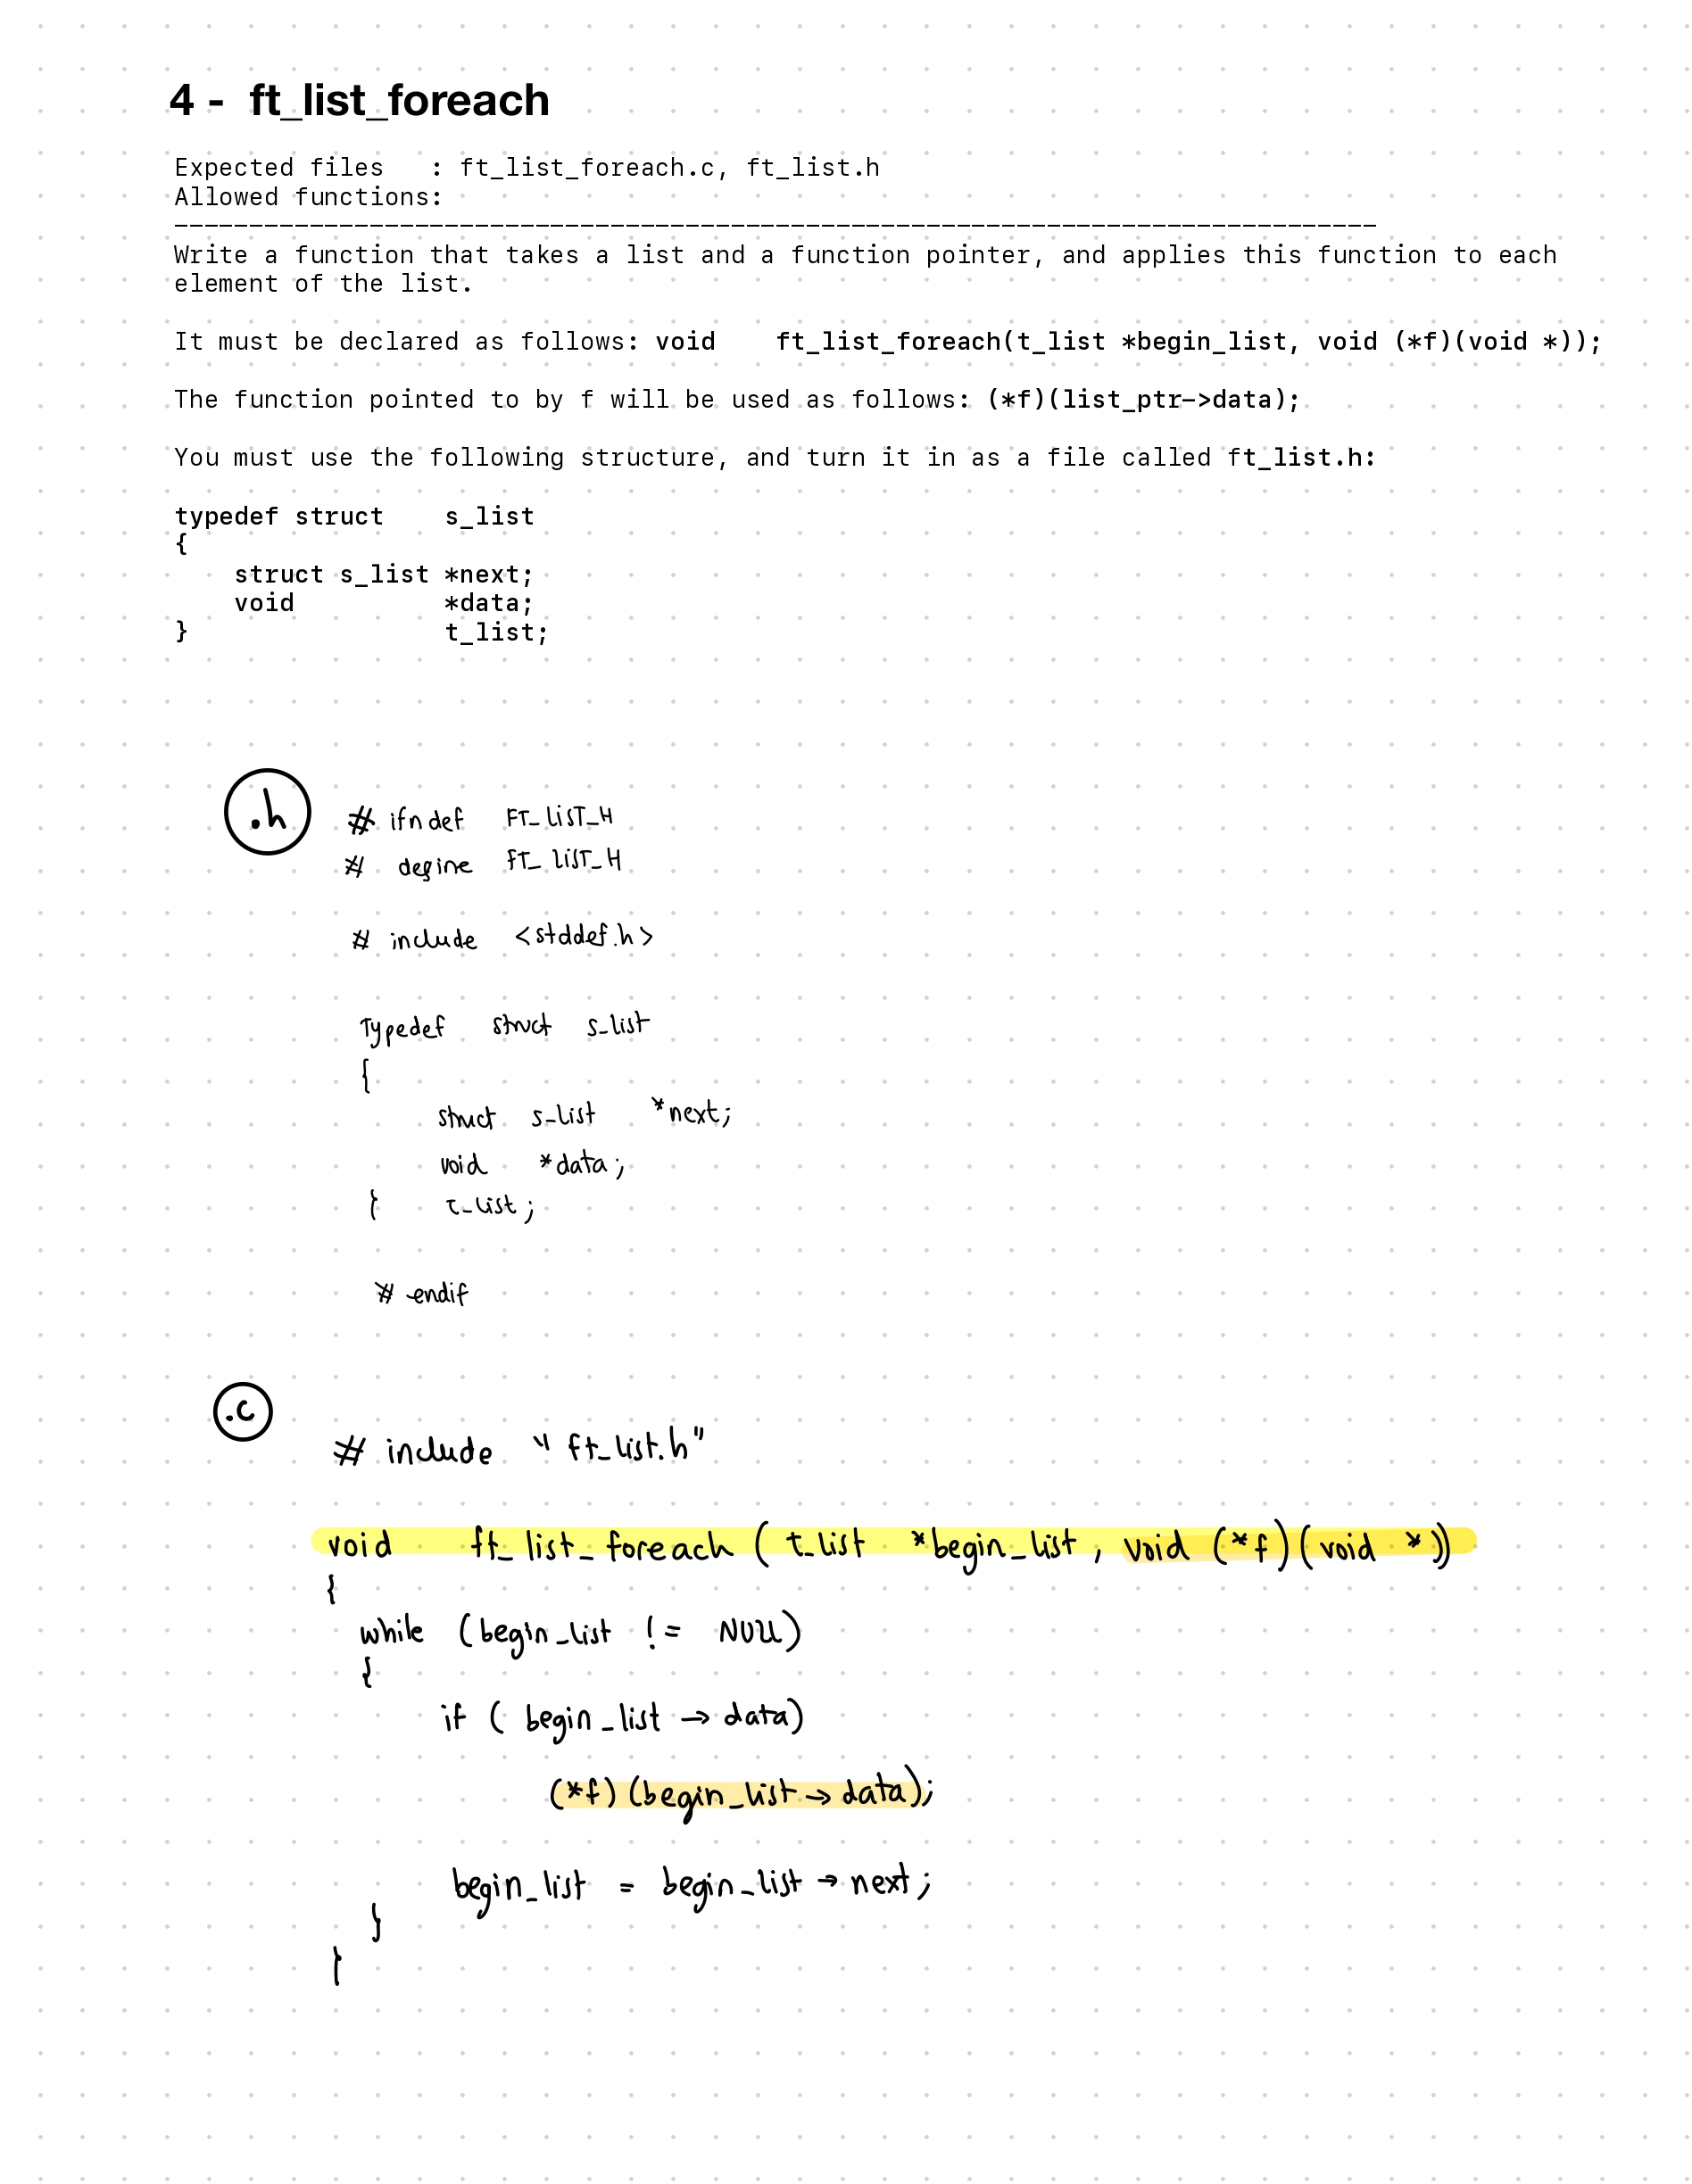 4 - ft_list_foreach
Expected files   : ft_list_foreach.c, ft_list.h
Allowed functions:
--------------------------------------------------------------------------------
Write a function that takes a list and a function pointer, and applies this function to each
element of the list.
It must be declared as follows: void    ft_list_foreach(t_list *begin_list, void (*f)(void *));
The function pointed to by f will be used as follows: (*f)(list_ptr->data);
You must use the following structure, and turn it in as a file called ft_list.h:
typedef struct    s_list
{
    struct s_list *next;
    void          *data;
}                 t_list;
.h
# ifndef FT_LIST_H
# define FT_LIST_H
# include <stddef.h>
Typedef struct s_list
{
struct s_list *next;
void *data;
} t_list;
# endif
.c
# include "ft_list.h"
void ft_list_foreach ( t_list *begin_list, void (*f)(void *))
{
while (begin_list != NULL)
{
if ( begin_list → data)
(*f) (begin_list → data);
begin_list = begin_list → next;
}
}